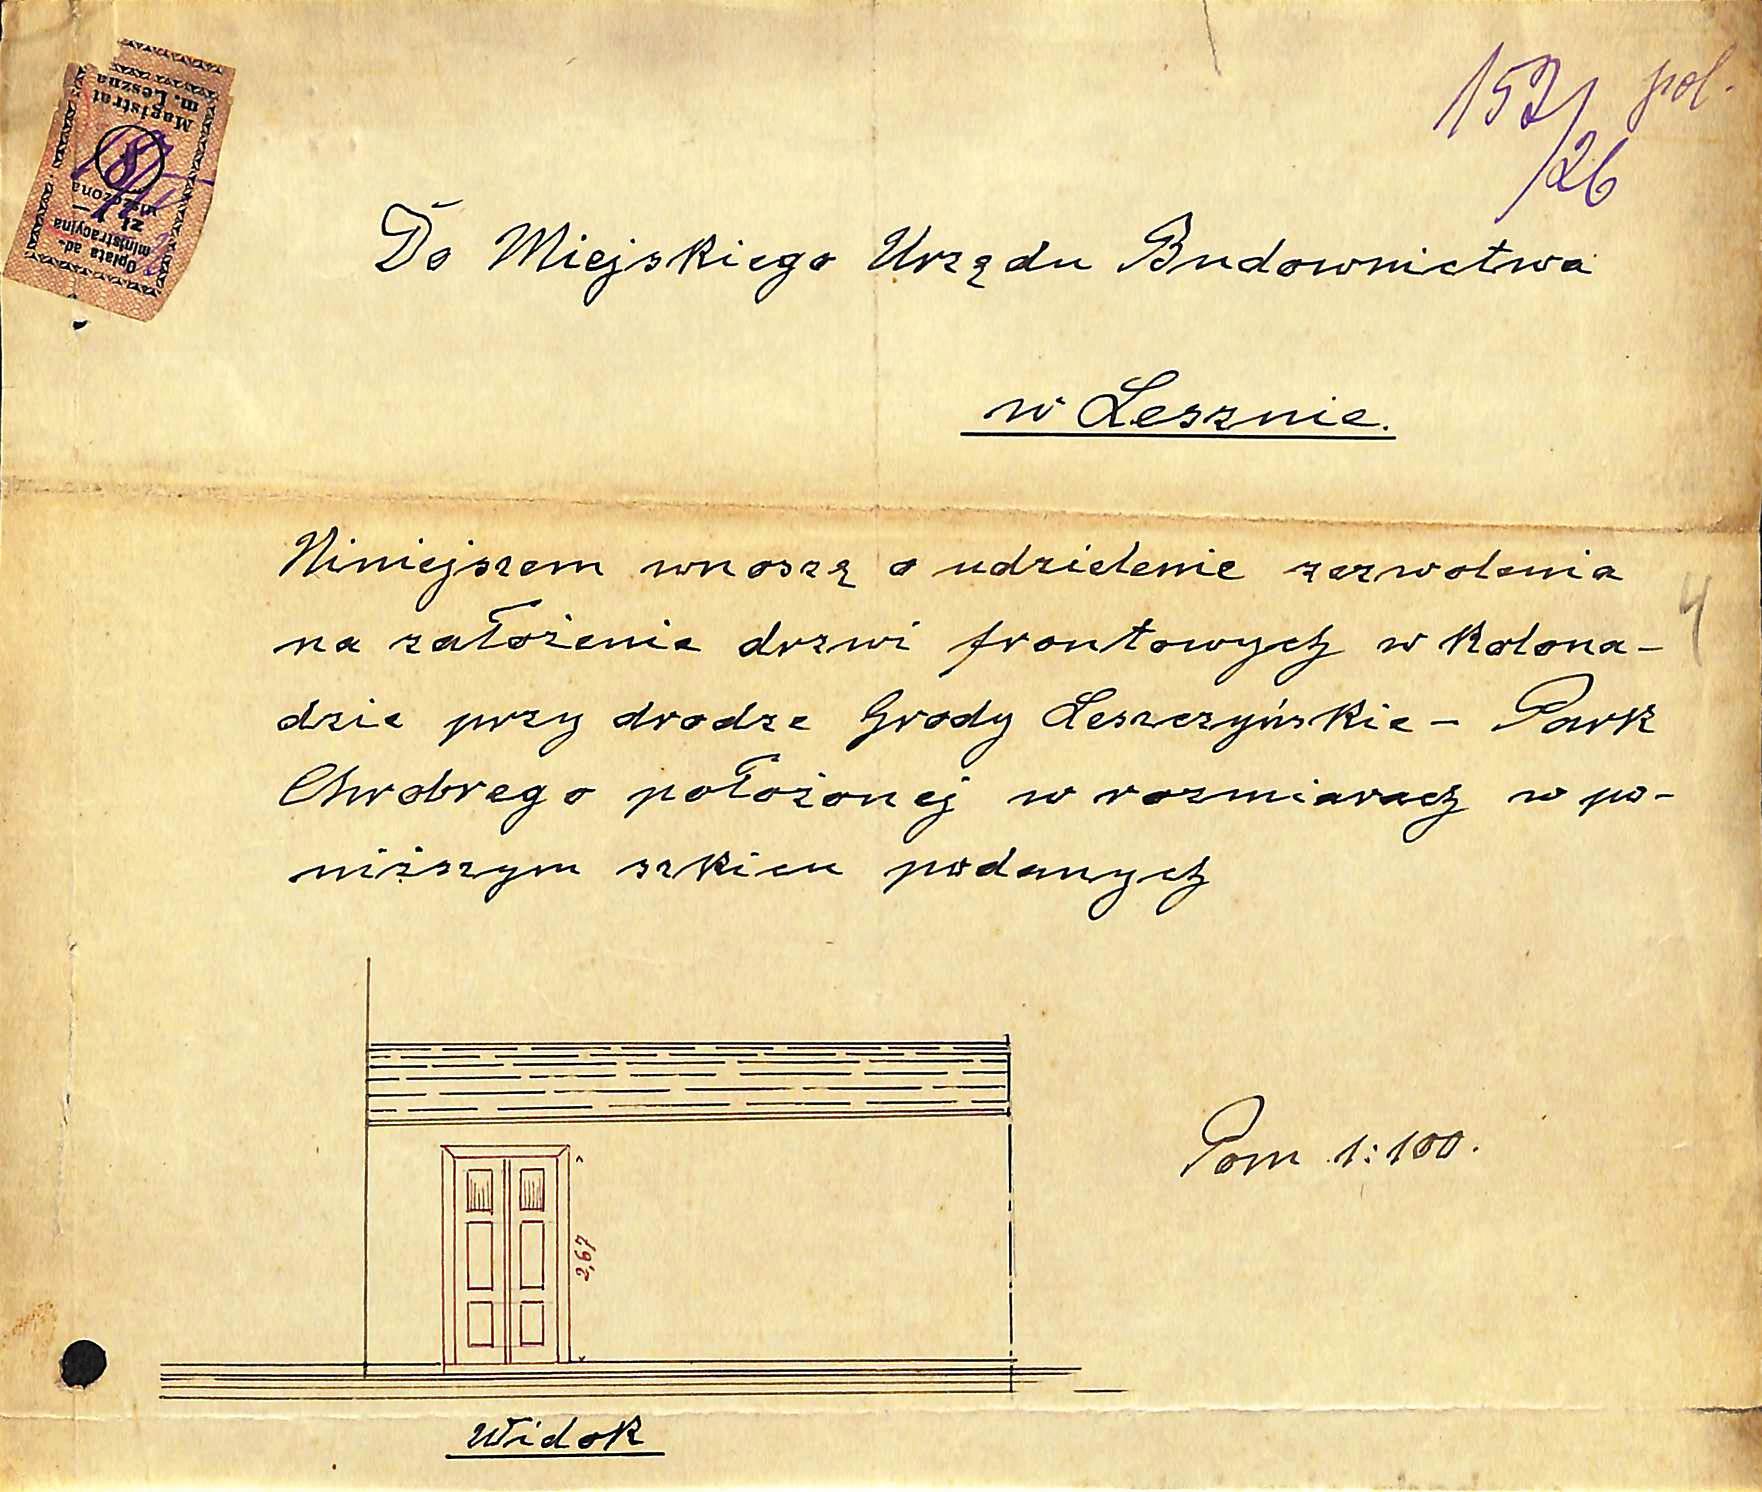 152/26 pol.
Opłata ad-
ministracyjna
zł 1.—
uiszczona
Magistrat
m. Leszna
Do Miejskiego Urzędu Budownictwa
w Lesznie.
Niniejszem wnoszę o udzielenie zezwolenia
4
na założenie drzwi frontowych w kolona-
dzie przy drodze Grody Leszczyńskie - Park
Chrobrego położonej w rozmiarach w po-
niższym szkicu podanych
Pom 1:100.
2,67
Widok